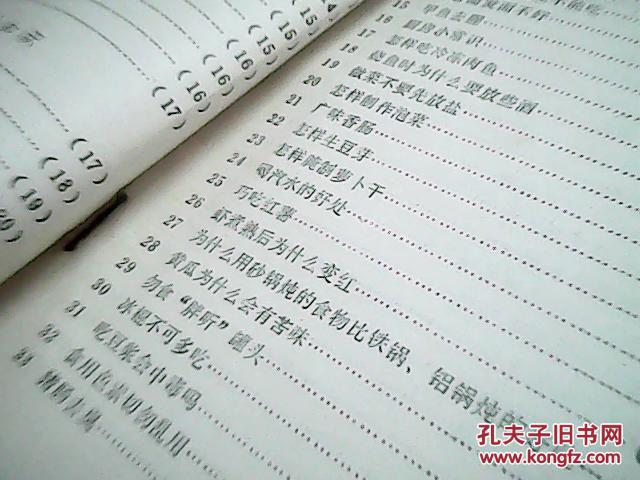 (15)
(15)
(16)
(16)
(16)
(17)
(17)
(18)
(19)
15 甲鱼去腥
16 厨房小常识
17 怎样吃冷冻肉鱼
18 烧鱼时为什么要放些酒
19 做菜不要先放盐
20 怎样制作泡菜
21 广味香肠
22 怎样生豆芽
23 怎样腌制萝卜干
24 喝汽水的好处
25 巧吃红薯
26 虾煮熟后为什么变红
27 为什么用砂锅炖的食物比铁锅、铝锅炖的
28 黄瓜为什么会有苦味
29 勿食“胖听”罐头
30 冰棍不可多吃
31 吃豆浆会中毒吗
32 食用色素切勿乱用
33 猪肠去臭
孔夫子旧书网
www.kongfz.com